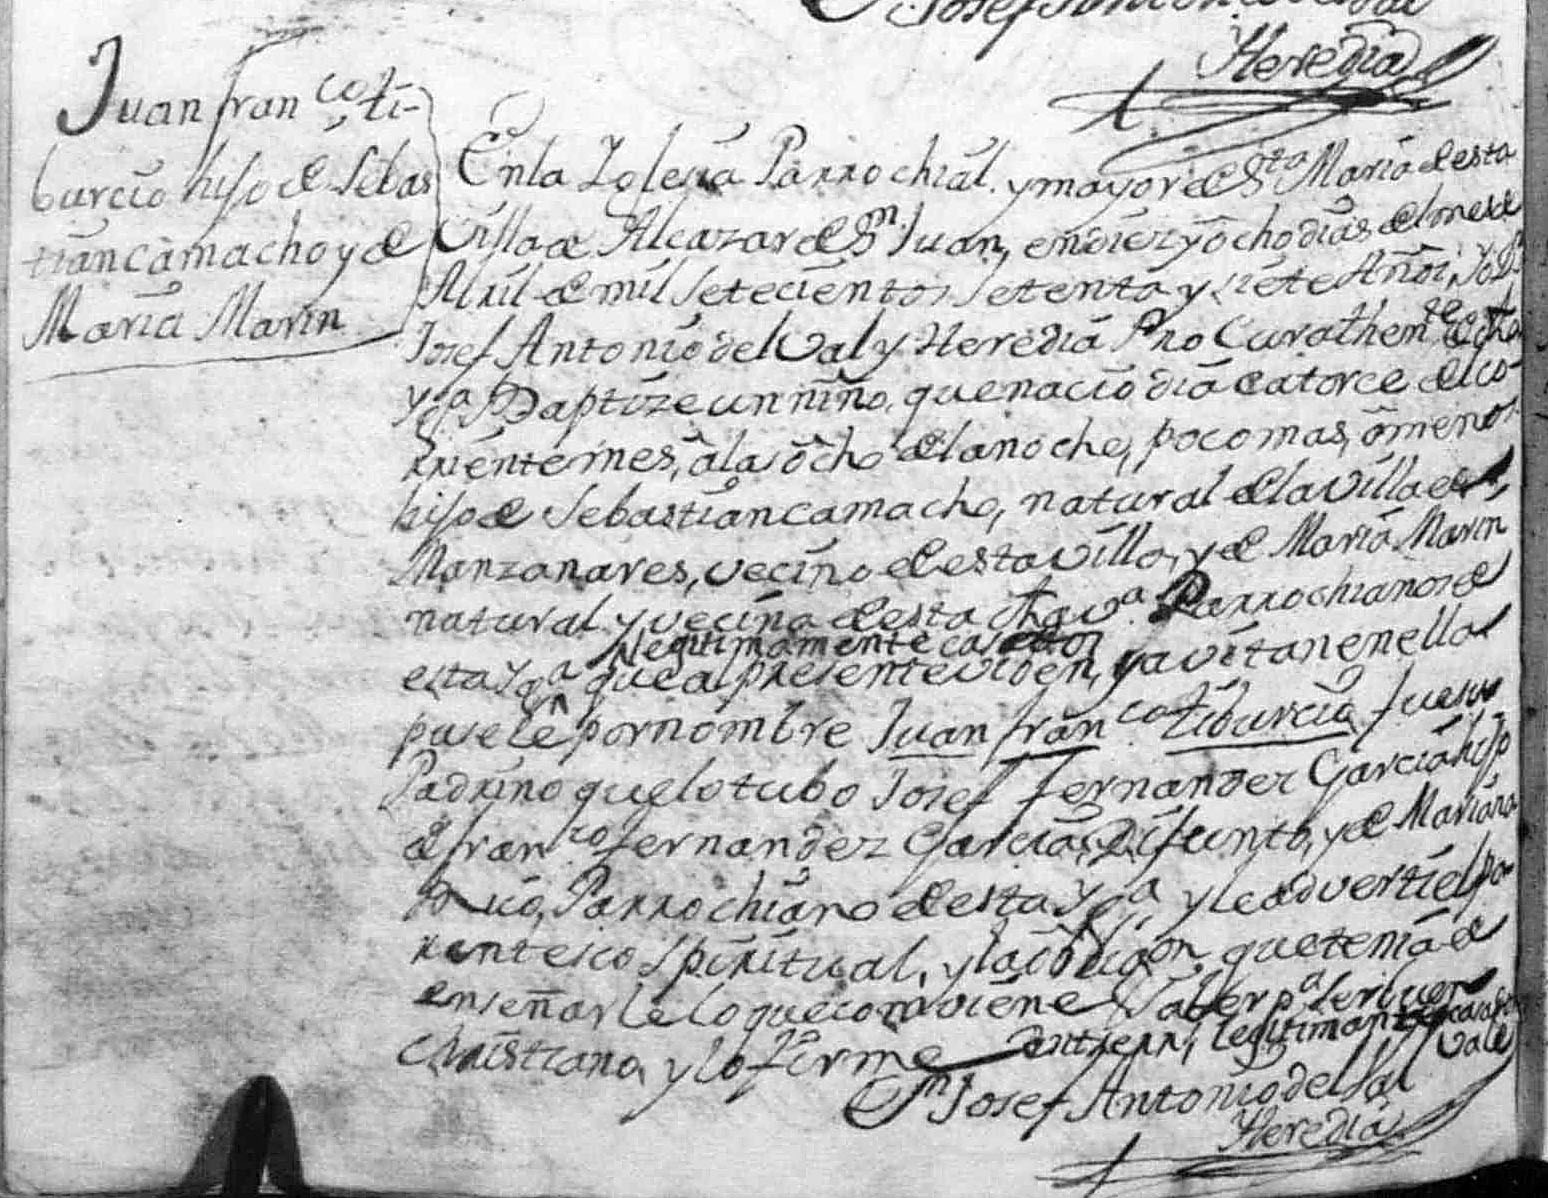 Josef Antonio del Val
Heredia
Juan fran.co ti-
burcio hijo de Sebas
tian camacho y de
Maria Marin
En la Yglesia Parrochial y mayor de S.ta Maria de esta
Villa de Alcazar de S.n Juan, en diez y ocho dias del mes de
Abril de mil setecientos setenta y siete Años, Yo D.n
Josef Antonio del Val y Heredia Pro Cura theni.te de dha
Ygª Baptize un niño, que nacio dia catorce del co-
rriente mes, a las ocho de la noche, poco mas, o menos
hijo de Sebastian camacho, natural de la Villa de
Manzanares, vecino de esta villa, y de Maria Marin
natural y vecina de esta dha v.ª Parrochianos de
legitimamente casados
esta Ygª que al presente viven, y avitan en ella
pusele por nombre Juan fran.co tiburcio fue su
Padrino que lo tubo Josef fernandez Garcia hijo
de fran.co fernandez Garcia, Difunto, y de Mariana
Parrochiano de esta Ygª y le adverti el pa-
rentesco spiritual, y la oblig.on que tenia de
enseñarle lo que conviene saber p.ª ser buen
christiano, y lo firme entrerr. legitimam.te casados
vale
D.n Josef Antonio del Val
Heredia